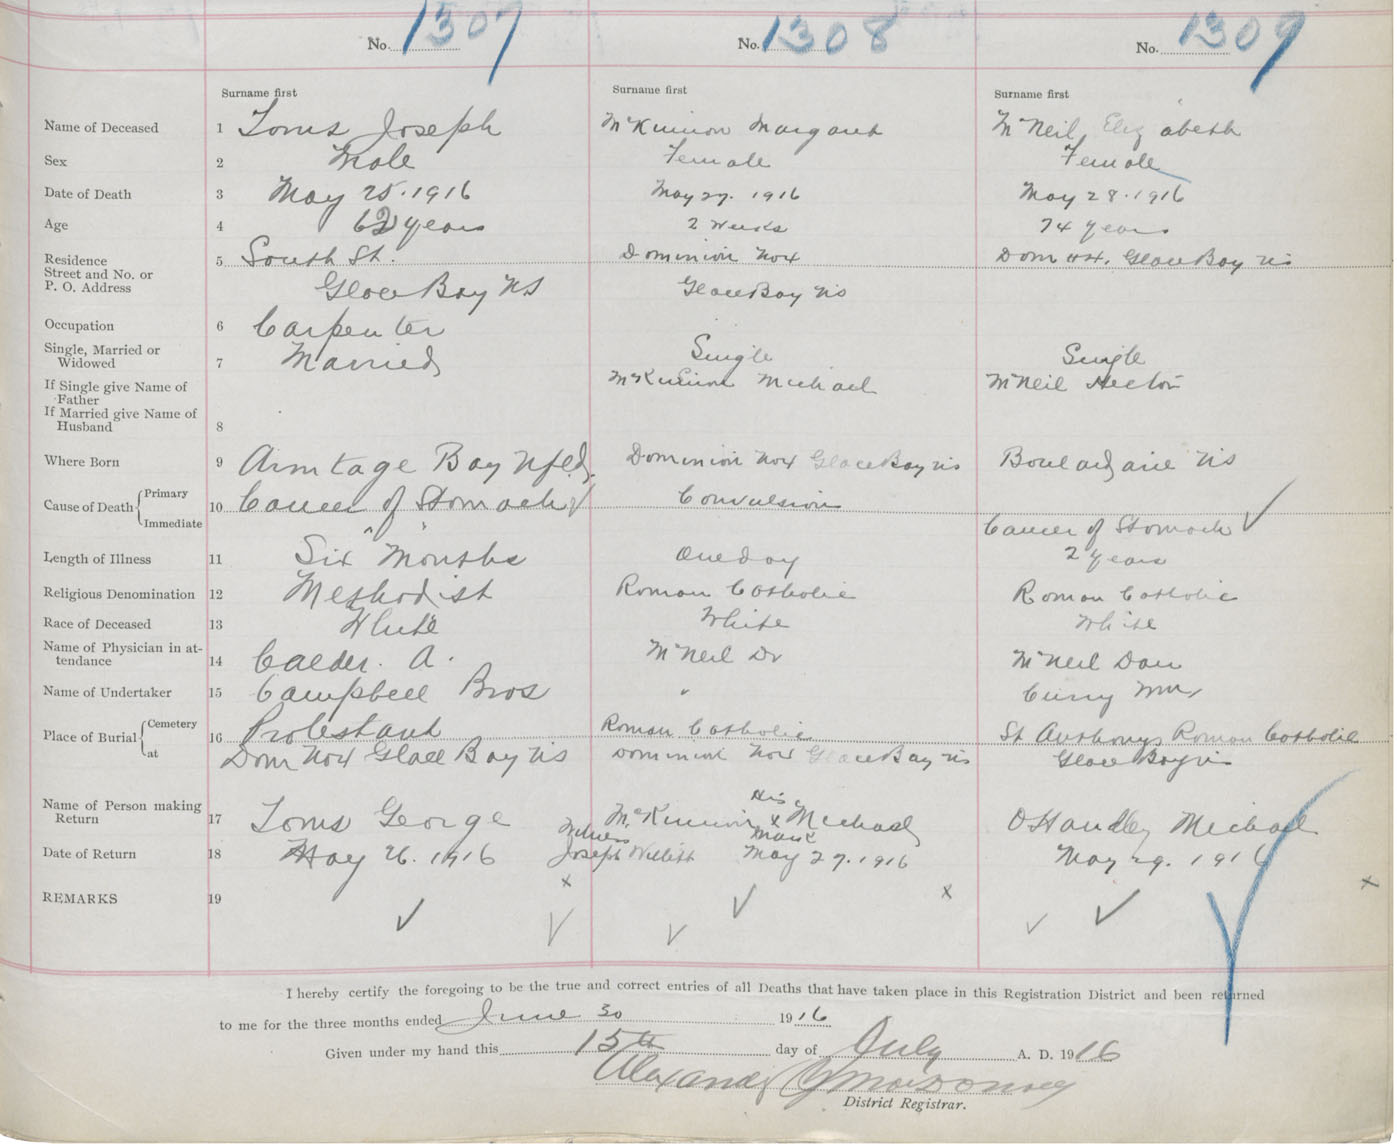 No. 1307 No. 1308 No. 1309
Surname first Surname first Surname first
Name of Deceased 1 Toms Joseph McKinnon Margaret McNeil Elizabeth
Sex 2 Male Female Female
Date of Death 3 May 25. 1916 May 27. 1916 May 28. 1916
Age 4 62 years 2 Weeks 74 years
Residence 5 South St. Dominion No4 Dom No4. Glace Bay NS
Street and No. or
P. O. Address Glace Bay NS Glace Bay NS
Occupation 6 Carpenter
Single, Married or
Widowed 7 Married Single Single
If Single give Name of
Father McKinnon Michael McNeil Hector
If Married give Name of
Husband 8
Where Born 9 Armtage Bay Nfld. Dominion No4 Glace Bay NS Boulardarie NS
Cause of Death { Primary
10 Cancer of Stomach Convulsion
Immediate Cancer of Stomach
Length of Illness 11 Six Months One Day 2 years
Religious Denomination 12 Methodist Roman Catholic Roman Catholic
Race of Deceased 13 White White White
Name of Physician in at-
tendance 14 Calder. A. McNeil Dr McNeil Dan
Name of Undertaker 15 Campbell Bros " Curry Wm
Place of Burial { Cemetery
16 Protestant Roman Catholic St Anthonys Roman Catholic
at Dom No4 Glace Bay NS Dominion No4 Glace Bay NS Glace Bay NS
His
Name of Person making
Return 17 Toms George McKinnon x Michael O Handley Michael
Witness Mark
Date of Return 18 May 26. 1916 Joseph Willitt May 27. 1916 May 29. 1916
REMARKS 19
I hereby certify the foregoing to be the true and correct entries of all Deaths that have taken place in this Registration District and been returned
to me for the three months ended June 30 1916
Given under my hand this 15th day of July A. D. 1916
Alexander MacDonald
District Registrar.